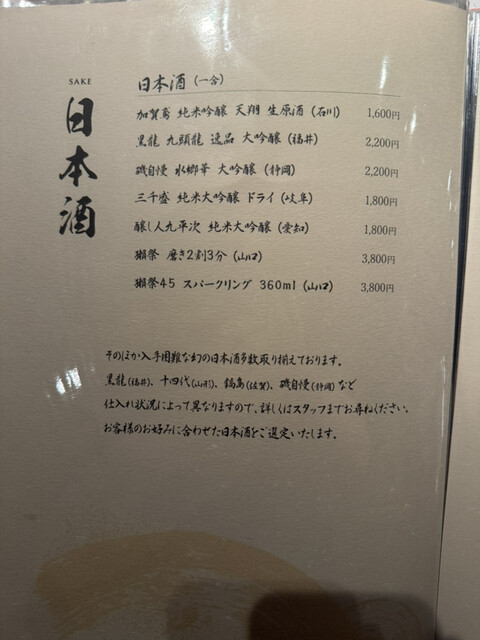 SAKE
日本酒
日本酒(一合)
加賀鳶 純米吟醸 天翔 生原酒 (石川) 1,600円
黒龍 九頭龍 逸品 大吟醸 (福井) 2,200円
磯自慢 水郷華 大吟醸 (静岡) 2,200円
三千盛 純米大吟醸 ドライ (岐阜) 1,800円
醸し人九平次 純米大吟醸 (愛知) 1,800円
獺祭 磨き2割3分 (山口) 3,800円
獺祭45 スパークリング 360ml (山口) 3,800円
そのほか入手困難な幻の日本酒多数取り揃えております。
黒龍(福井)、十四代(山形)、鍋島(佐賀)、磯自慢(静岡)など
仕入れ状況によって異なりますので、詳しくはスタッフまでお尋ねください。
お客様のお好みに合わせた日本酒をご選定いたします。